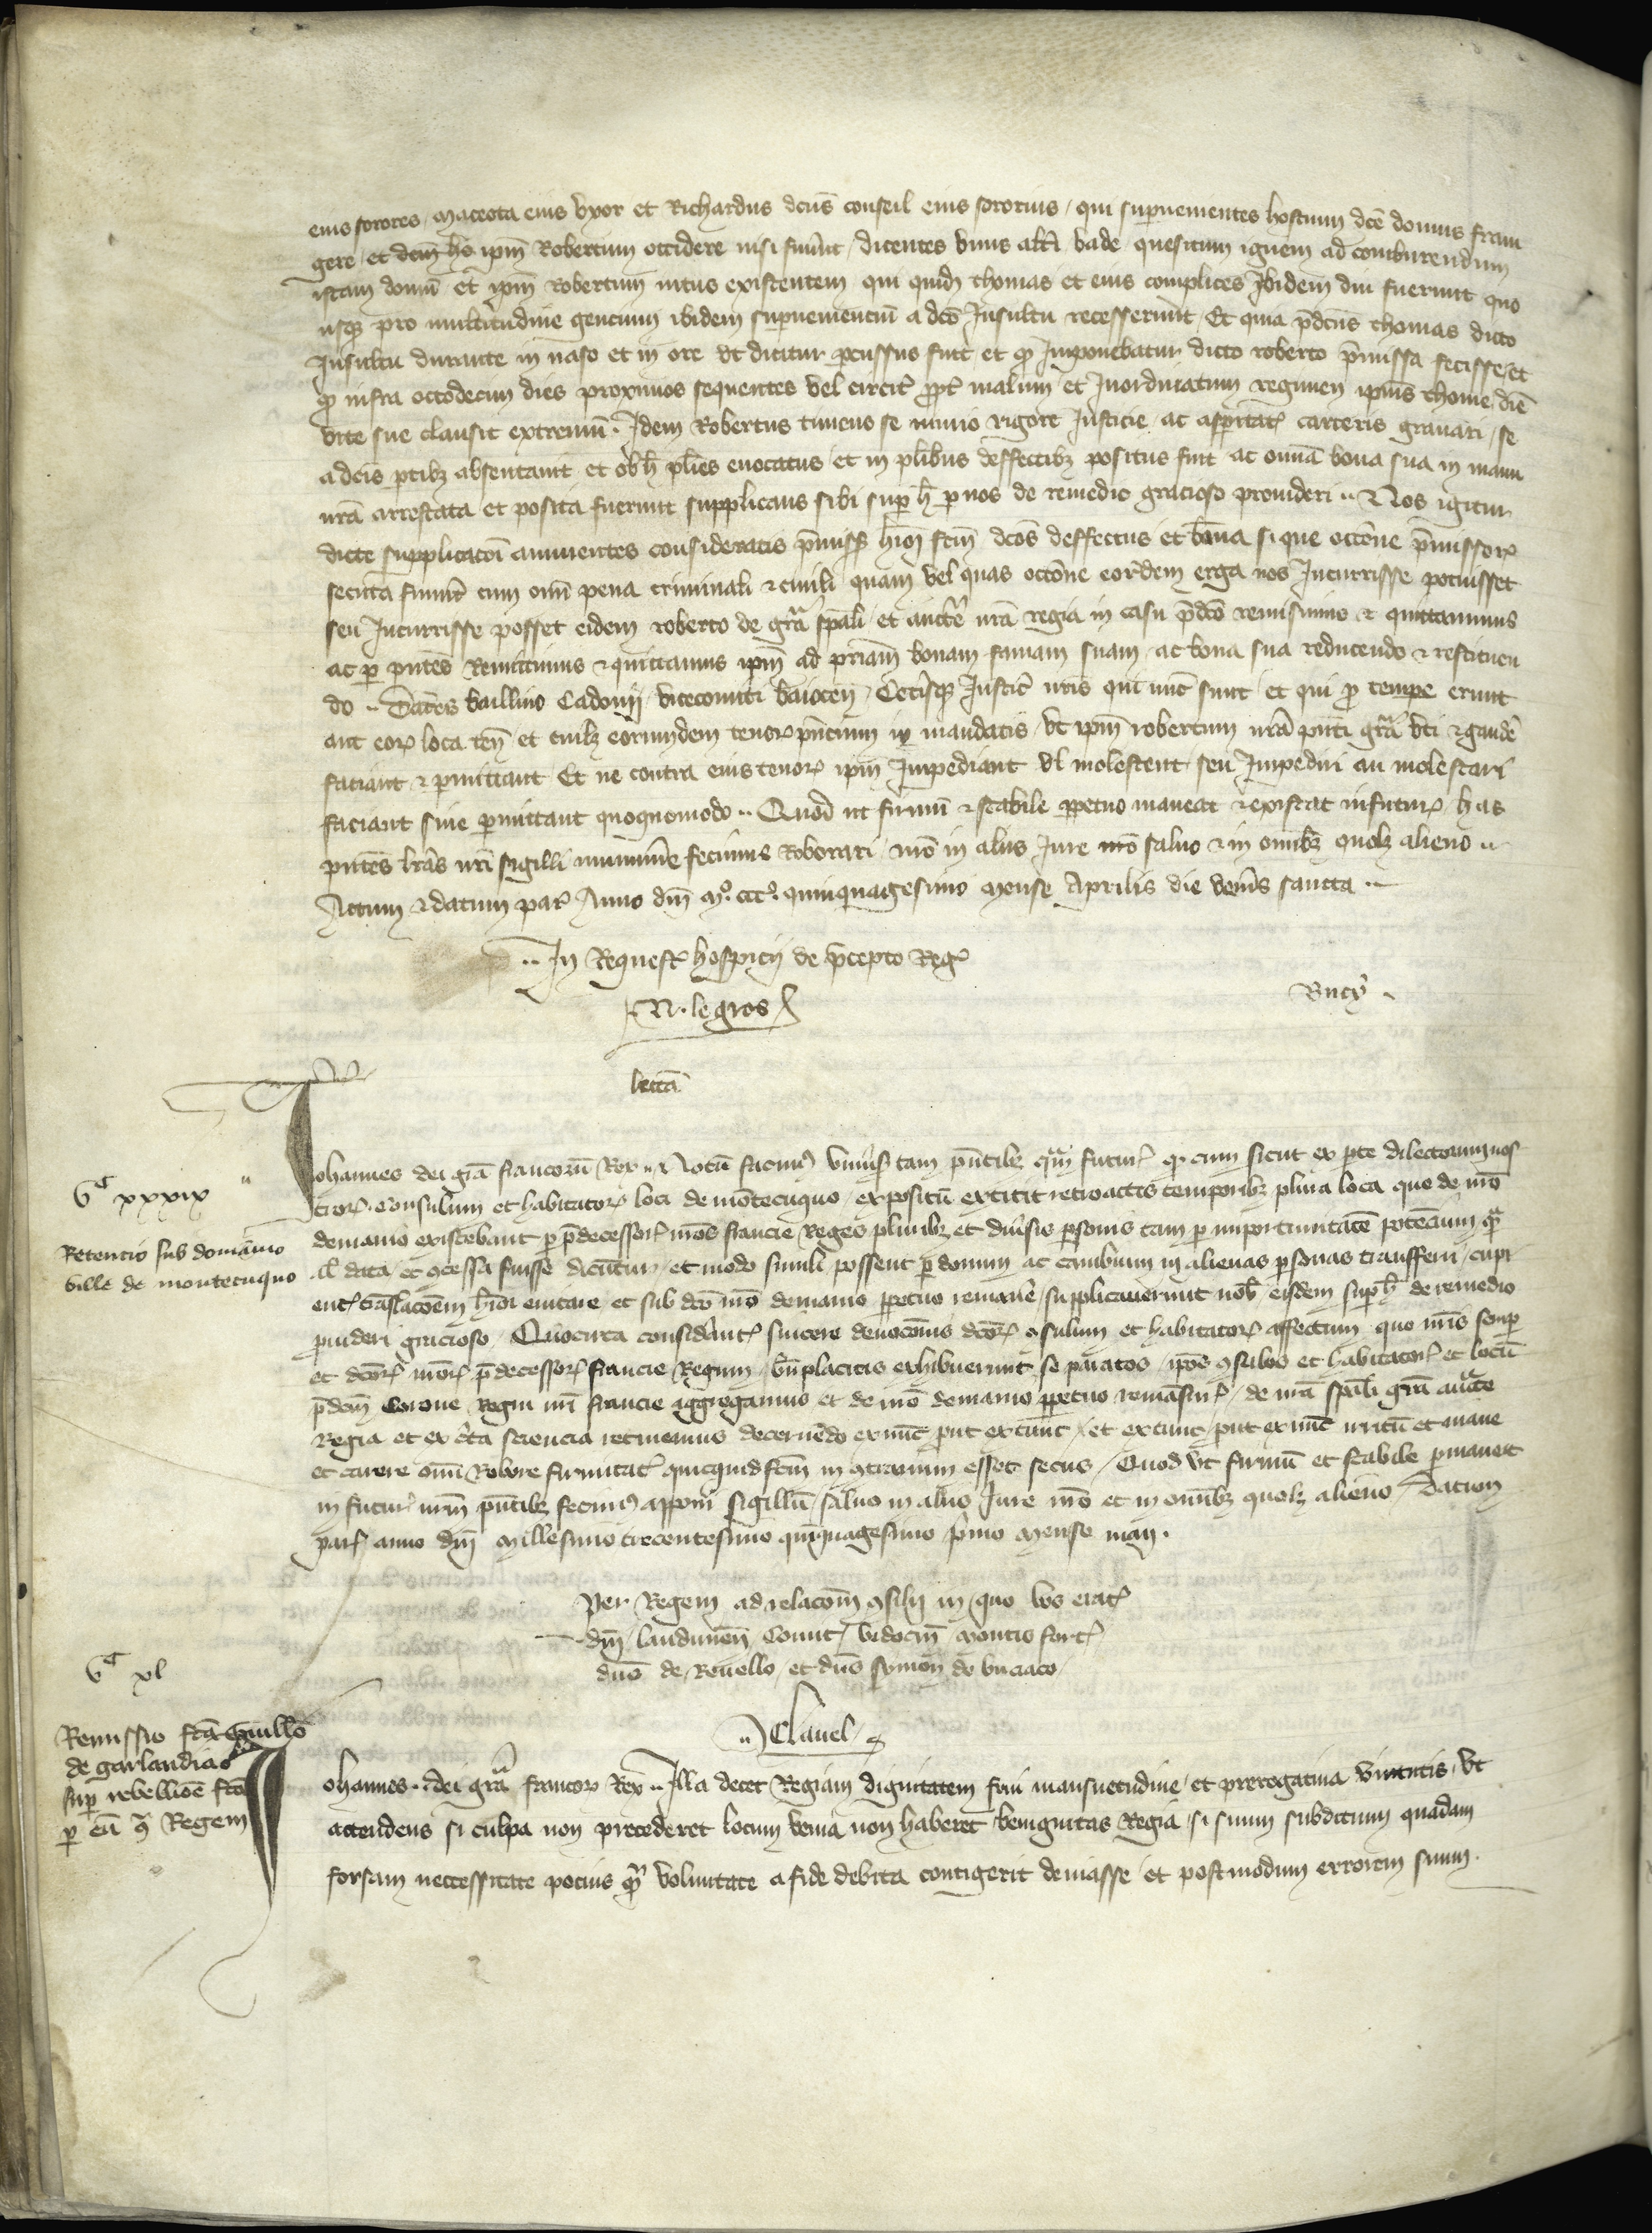 eius sorores, Maceota eius uxor et Richardus dcus conseil eius sororius, qui supuenientes hostium dce domus fran
gere et ipm Robertum occidere nisi fuerut, dicentes unus altri vade quesitum ignem ad comburendum
istam domu et ipm Robertum intus existentem qui quid thomas et eius complices Ibidem diu fuerunt quo
usq pro multitudine gencium ibidem supueniencium a dco Insultu recesserunt, Et quia pdcus thomas dicto
Insultu durante in naso et in ore ut dicitur percussus fuit et q Imponebatur dicto roberto pmissa fecisse et
q infra octodecim dies proximos sequentes vel circit ppt malum et Inordinatum regimen ipius thome die
vite sue clausit extremu. Idem Robertus timens se nimio rigore Justicie ac aspitate carceris gravari, se
a dcis ptibz absentavit et ob h plies evocatus et in plibus deffectibz positus fuit ac omia bona sua in manu
nra arrestata et posita fuerunt supplicans sibi sup h p nos de remedio gracioso provideri .. Nos igitur
dicte supplicacoi annuentes consideratis pmissis hmoi fcm dcos deffectus et bona si que occoe pmissor
secuta fuerit cum omi pena criminali & civili quam vel quas occoe eordem erga nos Incurrisse potuisset
seu Incurrisse posset eidem roberto de gra spali et aucte nra regia in casu pdco remisimus & quittavimus
ac p pntes Remittimus & quittamus ipm ad priam bonam famam suam ac bona sua reducendo & restituen
do .. Dantes baillivo Cadomi, vicecomiti baiocen, Cetisq Justic nris qui nuc sunt et qui p tempe erunt
aut eor loca ten et cuilz eorumdem tenor pncium in mandatis ut ipm robertum nra pnti gra uti & gaude
faciant & pmittant Et ne contra eius tenor ipm Impediant vl molestent seu Impediri au molestari
faciant sive permittant quoquomodo .. Quod ut firmu & stabile ppetuo maneat & existat in futur, has
pntes lras nri sigilli munimine fecimus Roborari, nro in aliis Jure nro salvo & in omibz quolz alieno ..
Actum & datum par Anno dni M° ccc° quinquagesimo Mense Aprilis die veneris sancta ..
.. In Request hospicii de pcepto Reg
N. le gros
Bucy.
lecta
Gc xxxix
Retencio sub domanio
ville de montecuquo
Johannes dei gra francoru Rex .. Notu facim univsis tam pntibz qm futur q cum sicut ex pte dilectorum nos
tror Consulum et habitator loci de montecuquo, expositu extitit retroactis temporibz plura loca que de nro
demanio existebant p pdecessor nros francie Reges pluribz et divsis psonis tam p importunitate potencium q
al data et ccessa fuisse dicuntur, et modo simili possent p donum ac cambium in alienas psonas transferri, cupi
ent traslacoem hmoi evitare et sub dco nro demanio ppetuo remane, supplicaverunt nob eisdem sup h de remedio
puideri gracioso. Quocirca considant sincere devocois dcor csulum et habitator affectum quo nris semp
et dcor nror pdecessor francie Regum, bnplacitis exhibuerunt se paratos, ipos csules et habitator et locu
pdcm Corone Regni nri francie aggregamus et de nro demanio ppetuo remasur, de nra spali gra aucte
Regia et ex cta sciencia retinemus decernedo ex nuc put ex tunc et ex tunc put ex nuc irritu et inane
et carere omi Robore firmitat quicquid fcm in ctrarium esset secus, Quod ut firmu et stabile pmaneat
in futur nrm pntibz fecim apponi sigillu, salvo in aliis Jure nro et in omibz quolz alieno, Datum
par anno dni Millesimo trecentesimo quinquagesimo primo Mense maii.
Per Regem ad relacom csilii in quo vos erat
dni laudunen Comit vidocin Montis fort
dns de Revello, et dns symon de buciaco
.. Clavel
Gc xl
Remissio fca Guillo
de garlandia
sup rebellioe fca
p eu c Regem
Johannes .. dei gra francor Rex .. Illa decet Regiam dignitatem frui mansuetudine et prerogativa virtutis, ut
attendens si culpa non precederet locum venia non haberet benignitas Regia, si suum subditum quadam
forsam neccessitate pocius qm voluntate a fide debita contigerit deviasse et postmodum errorem suum